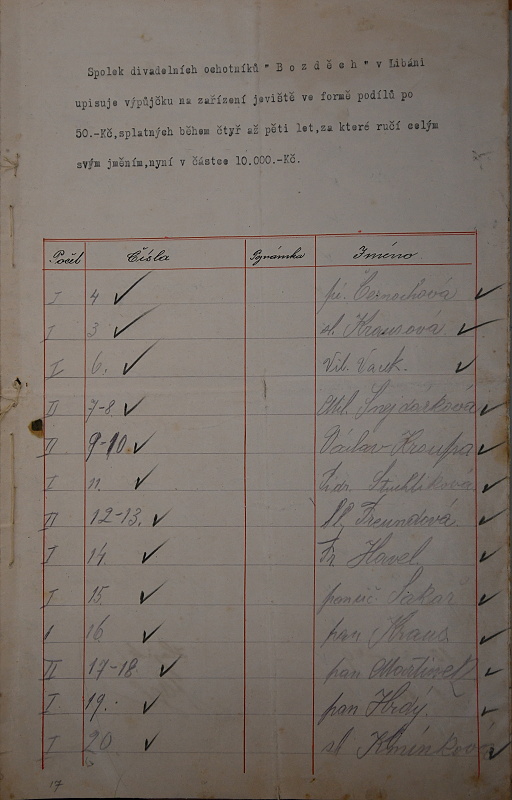 Spolek divadelních ochotníků "B o z d ě c h" v Libáni
upisuje výpůjčku na zařízení jeviště ve formě podílů po
50.-Kč,splatných během čtyř až pěti let,za které ručí celým
svým jměním,nyní v částce 10.000.-Kč.
Počet Čísla Poznámka Jméno
I 4 pí. Černochová
I 3 sl. Krausová
I 6. Vil. Vaněk.
II 7-8 Šnejdarková
II 9-10 Václav Kroupa
I 11.
II 12-13. sl. Freundová
I 14. Fr. Havel
I 15. Sakař
I 16 pan Kraus
II 17-18 pan
I 19. pan Hrdý.
I 20 sl. Kmínková
17